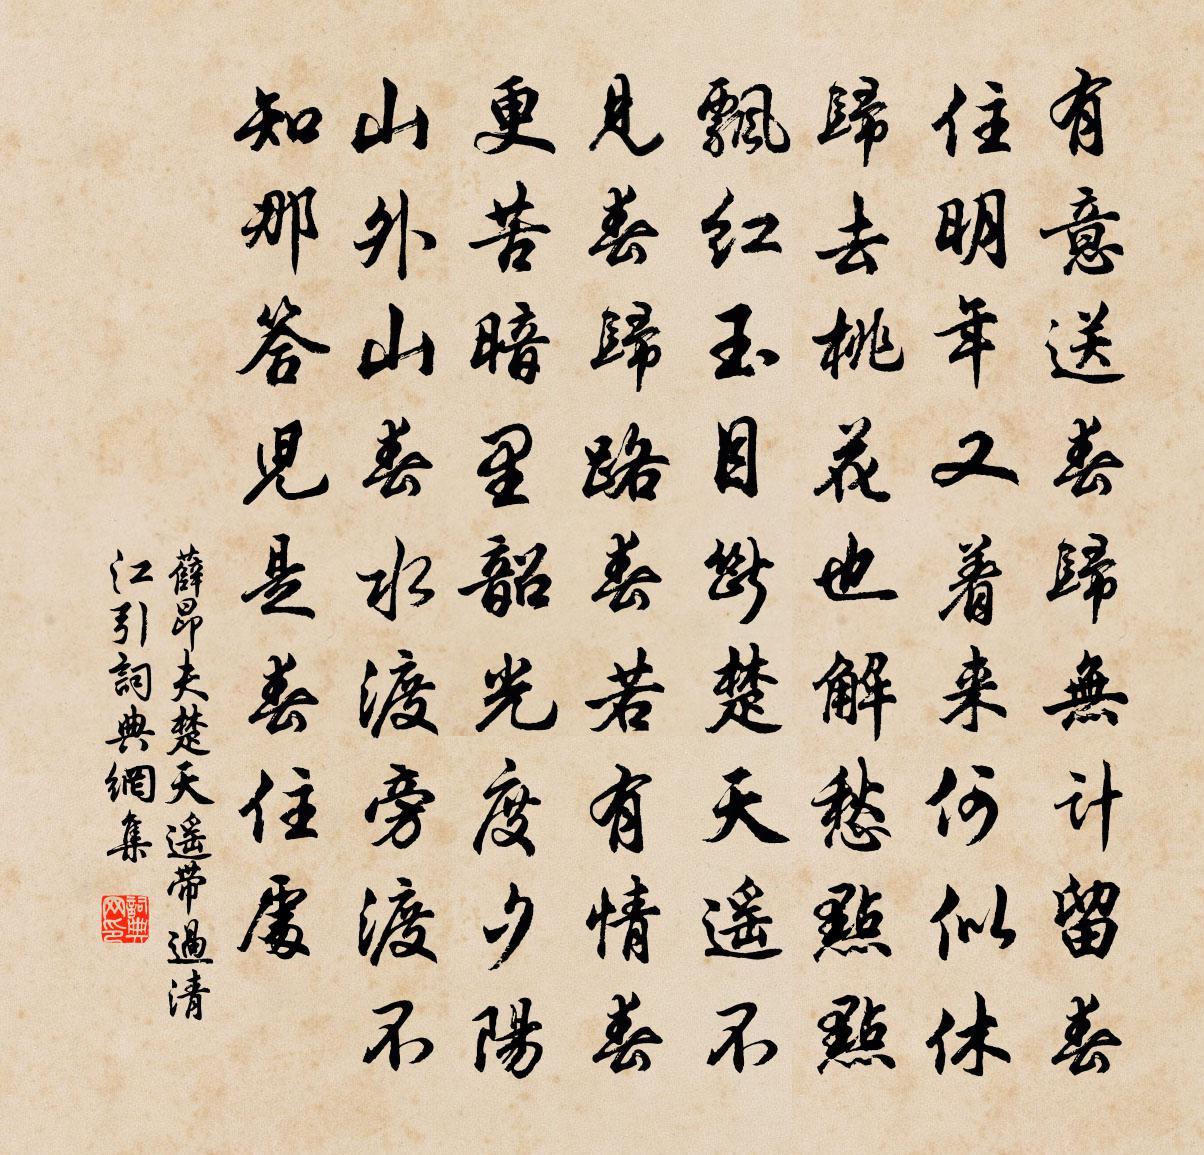 有意送春歸無計留春
住明年又着来何似休
歸去桃花也解愁點點
飄红玉目斷楚天遥不
見春歸路春若有情春
更苦暗里韶光度夕陽
山外山春水渡旁渡不
知那答兒是春住處
薛昂夫楚天遥带過清
江引詞典網集
詞典
网印